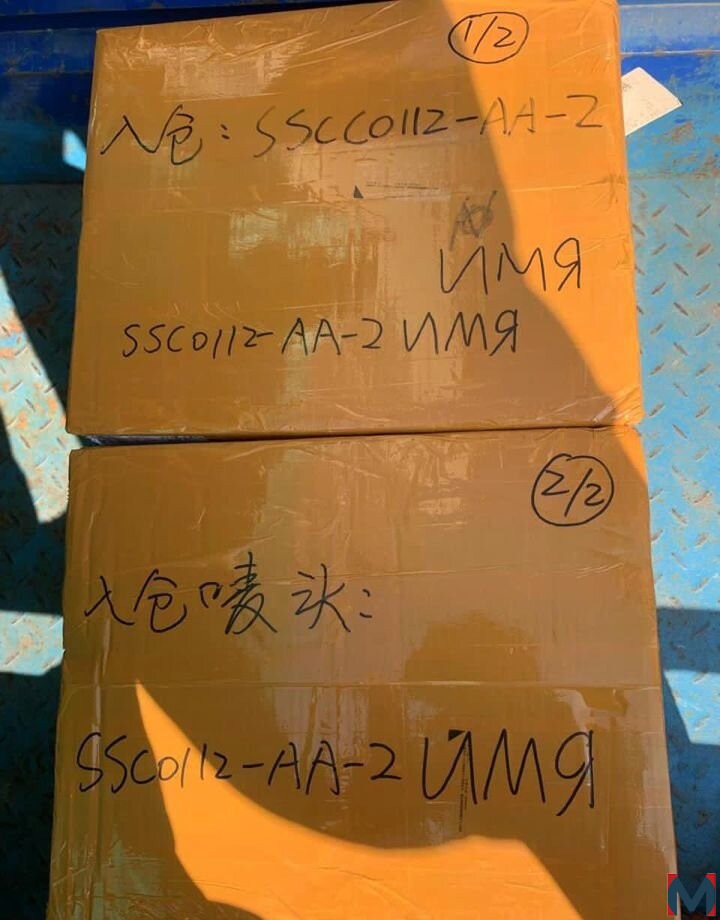 1/2
入仓: SSCC0112-AA-2
ИМЯ
SSC0112-AA-2 ИМЯ
2/2
入仓唛头:
SSC0112-AA-2 ИМЯ
M